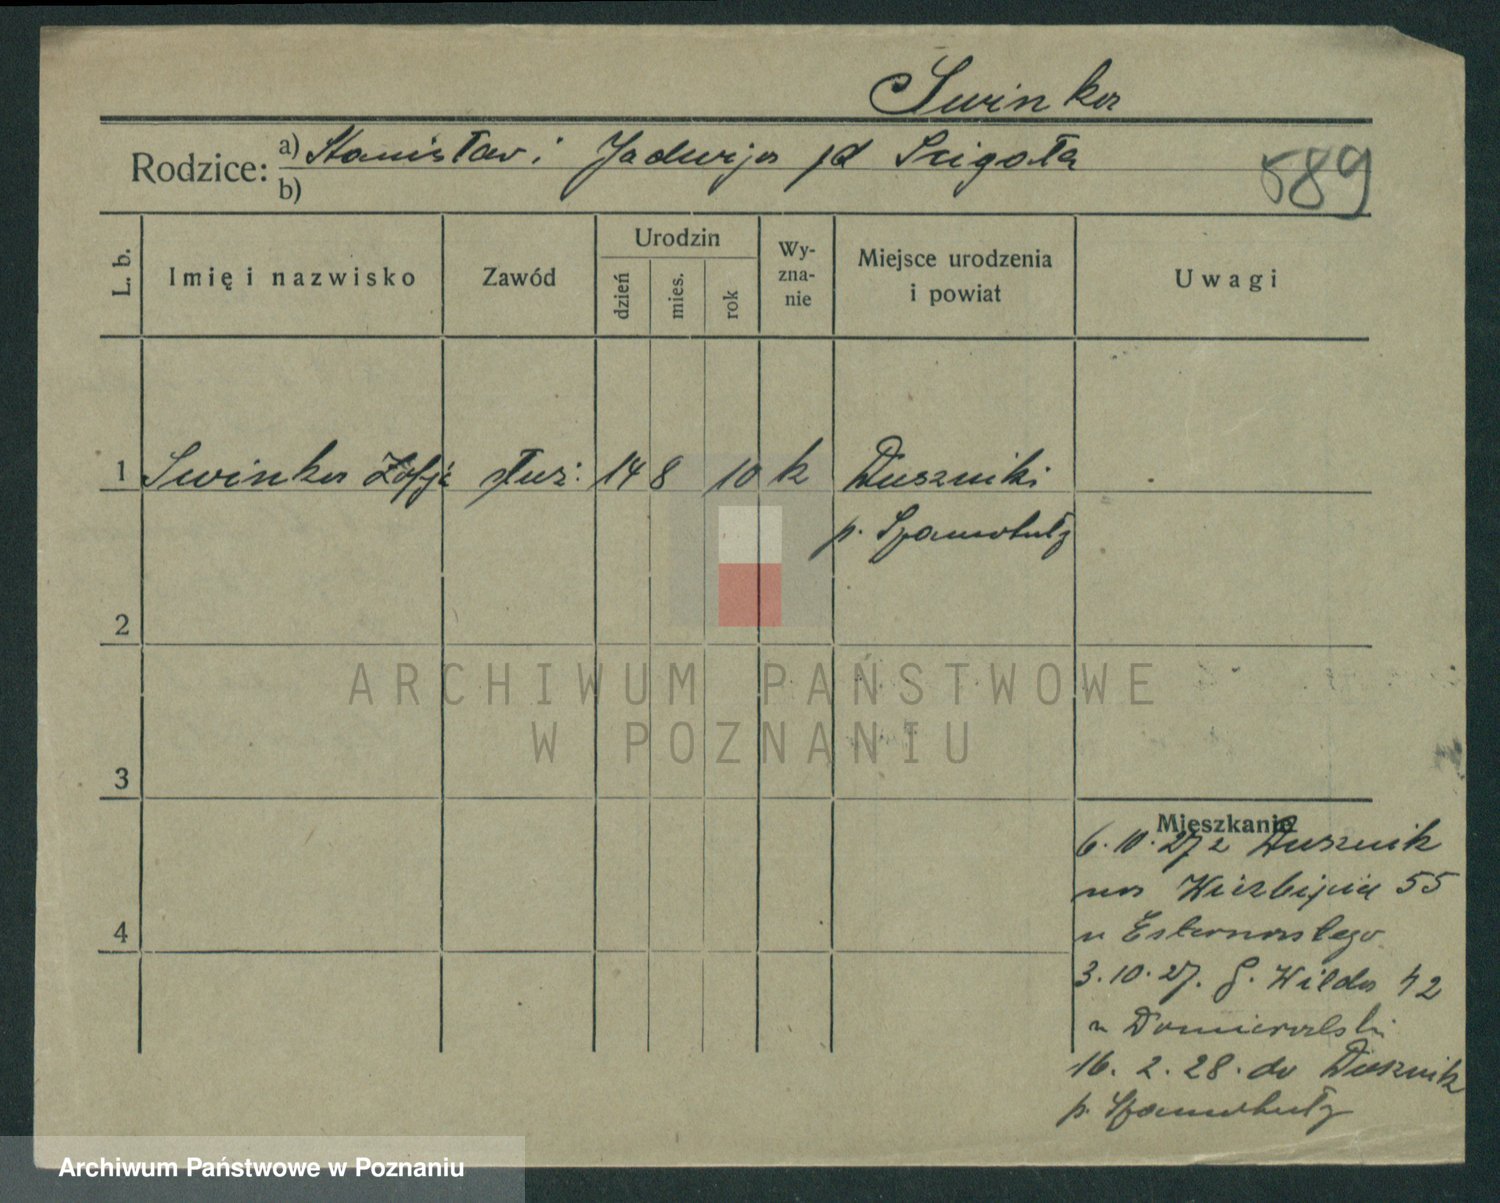 Swinka
Rodzice: a) Stanisław i Jadwiga jd Scigała
b)
589
L. b.
Imię i nazwisko
Zawód
Urodzin
dzień
mies.
rok
Wy-
zna-
nie
Miejsce urodzenia
i powiat
Uwagi
1 Swinka Zofja służ. 14 8 10 k Duszniki
p. Szamotuły
2
3
4
Mieszkanie
6.10.27 z Dusznik
na 55
u
3.10.27. G. Wilda 42
u Domieralski
16.2.28. do Dusznik
p. Szamotuły
ARCHIWUM PAŃSTWOWE
W POZNANIU
Archiwum Państwowe w Poznaniu